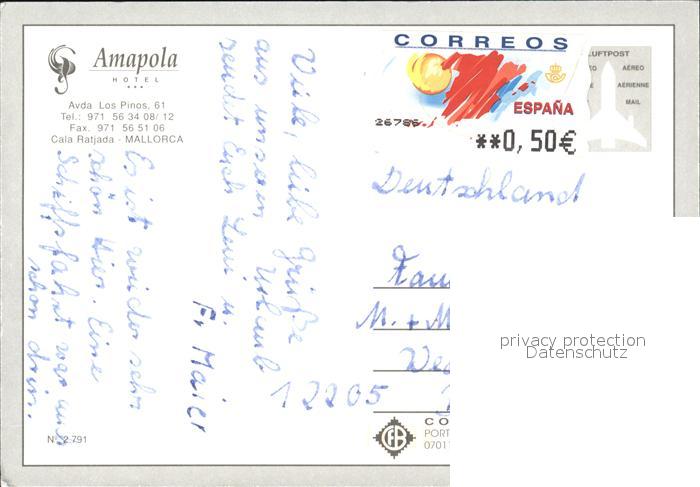 Amapola
HOTEL
Avda Los Pinos, 61
Tel.: 971 56 34 08/ 12
Fax. 971 56 51 06
Cala Ratjada - MALLORCA
CORREOS
ESPAÑA
**0,50€
LUFTPOST
AÉREO
AÉRIENNE
MAIL
Viele, liebe Grüße
aus unserem Urlaub
sendet Euch u.
Fr. Maier
Es ist wieder sehr
schön hier. Eine
Schiffsfahrt war auch
schon drin.
Deutschland
Fam
M. + M
We
12205
privacy protection
Datenschutz
CO
PORT
07011
Nº 2.791